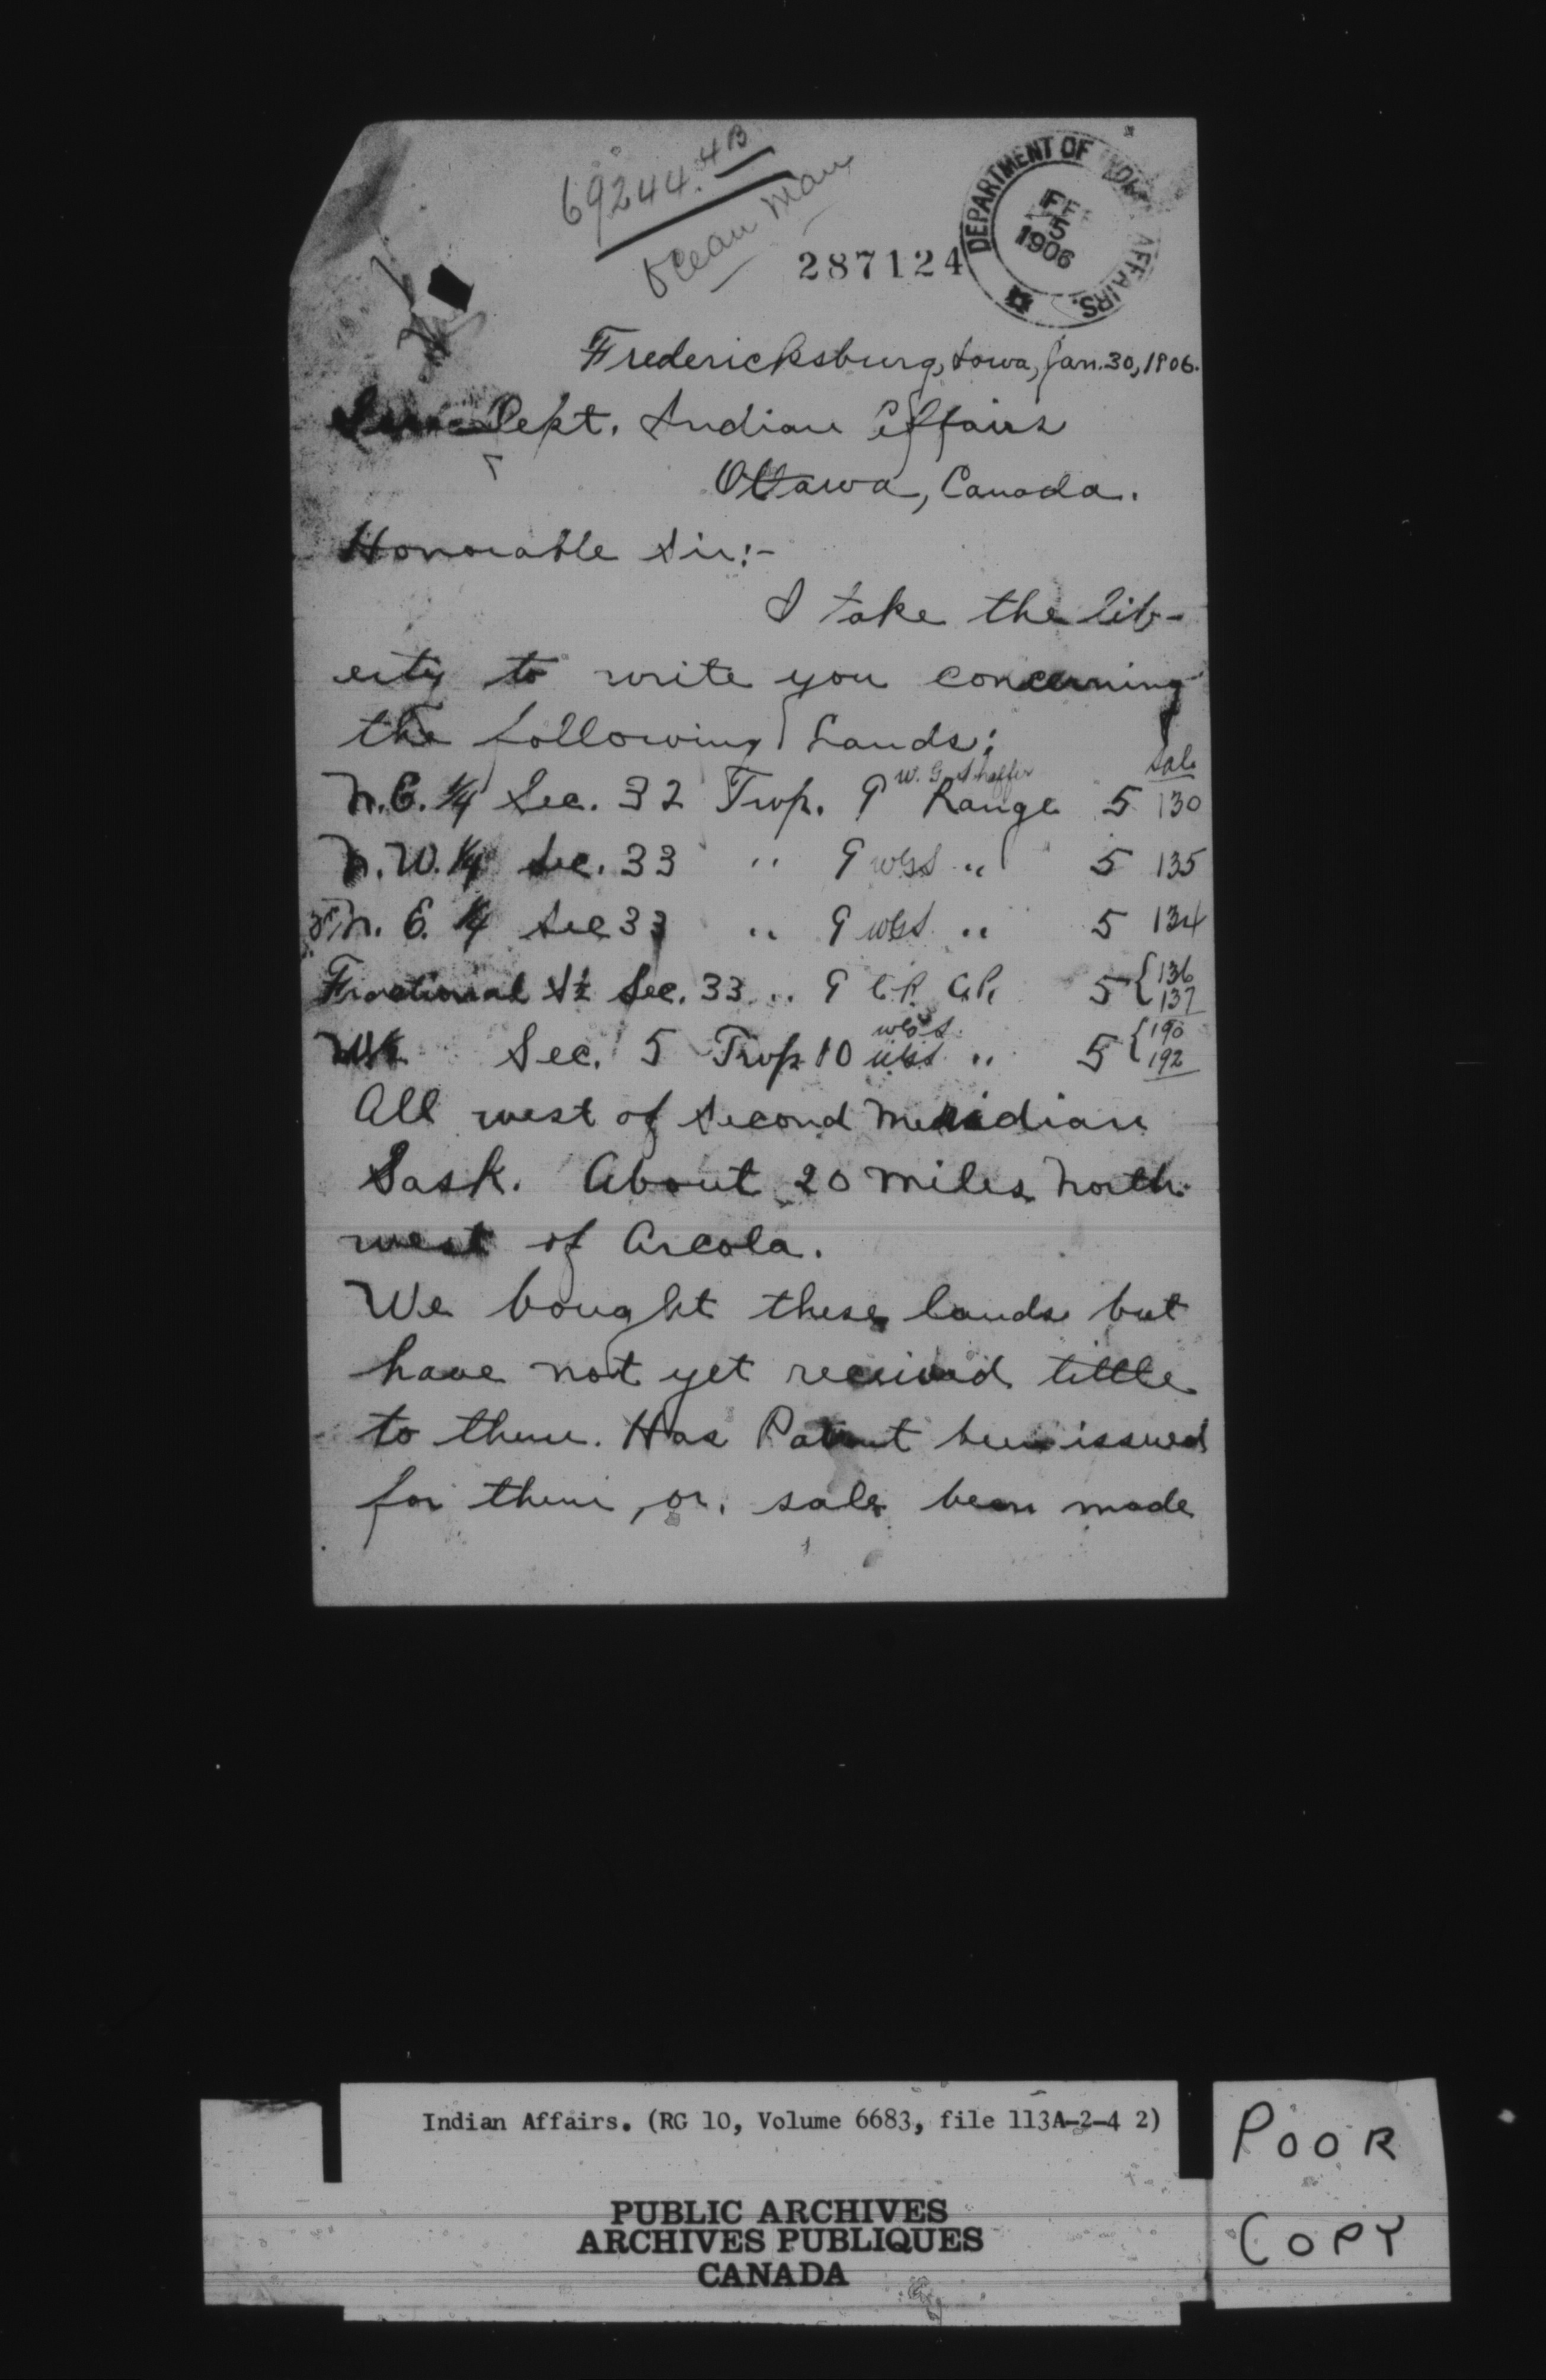 69244.4B
Ocean Man
287124
DEPARTMENT OF INDIAN AFFAIRS.
FEB 5 1906
Fredericksburg, Iowa, Jan. 30, 1906.
Dept. Indian Affairs
Ottawa, Canada.
Honorable Sir:-
I take the lib-
erty to write you concerning
the following Lands:
Sale
W. G. Shaffer
N.E. 1/4 Sec. 32 Twp. 9 Range 5 130
N.W. 1/4 Sec. 33 " 9 WGS " 5 135
N. E. 1/4 Sec 33 " 9 WGS " 5 134
Fractional S 1/2 Sec. 33 " 9 5 { 136
137
WGS
W 1/2 Sec. 5 Twp 10 WGS " 5 { 190
192
All west of Second Meridian
Sask. About 20 miles North
west of Arcola.
We bought these lands but
have not yet received tittle
to them. Has Patent been issued
for them, or, sale been made
Indian Affairs. (RG 10, Volume 6683, file 113A-2-4 2)
PUBLIC ARCHIVES
ARCHIVES PUBLIQUES
CANADA
POOR
COPY